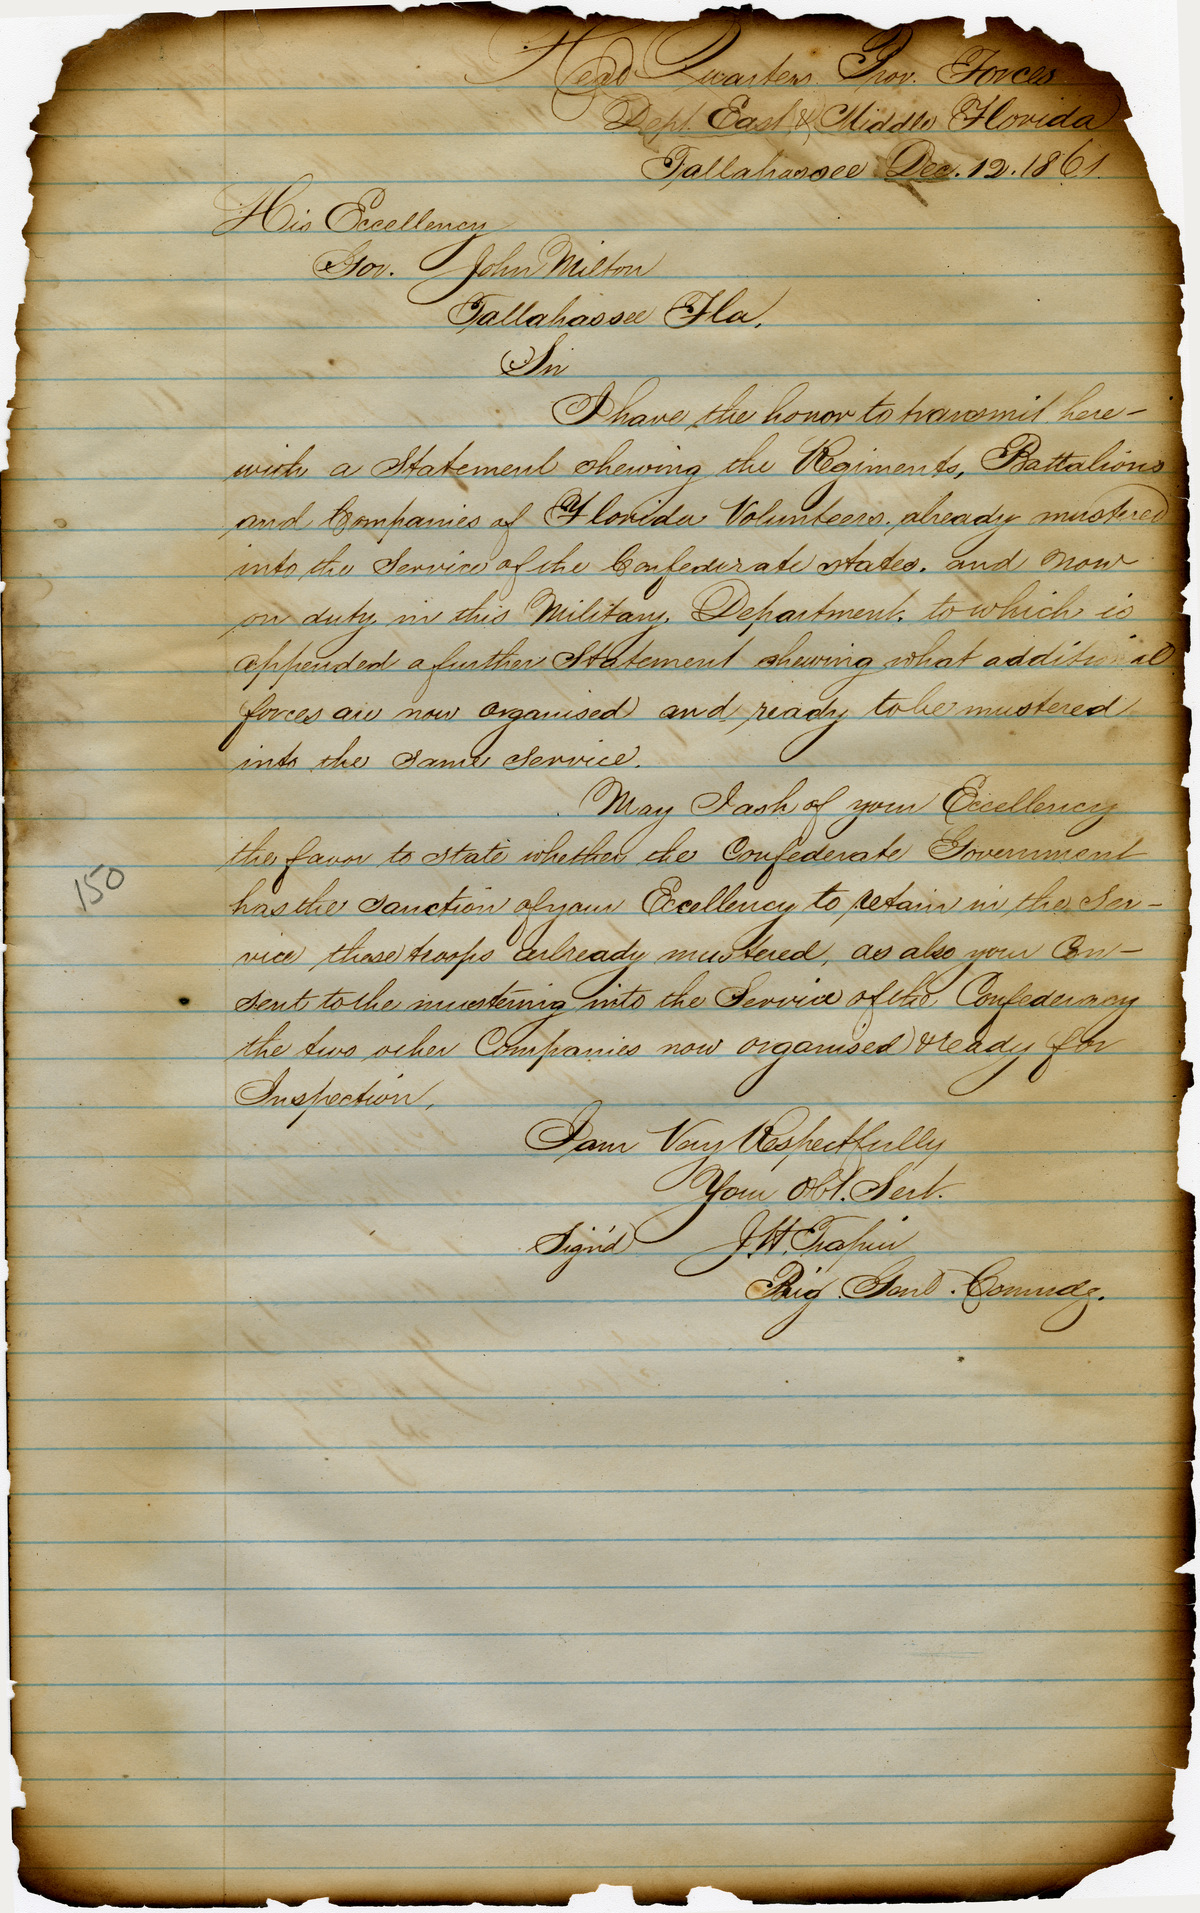 Head Quarters Prov. Forces
Dept. East & Middle Florida
Tallahassee Dec. 12. 1861.
His Excellency
Gov. John Milton
Tallahassee Fla.
Sir
I have the honor to transmit here-
with a Statement shewing the Regiments, Battalions
and Companies of Florida Volunteers. already mustered
into the Service of the Confederate states. and now
on duty in this Military Department. to which is
appended a further Statement shewing what additional
forces are now organised and ready to be mustered
into the same service.
May I ask of your Excellency
the favor to state whether the Confederate Government
has the sanction of your Excellency to retain in the Ser-
vice these troops already mustered, as also your Con-
sent to the mustering into the Service of the Confederacy
the two other Companies now organised & ready for
150
Inspection.
I am Very Respectfully
Your Obt. Sert.
Sign'd J. H. Trapier
Brig. Genl. Commdg.